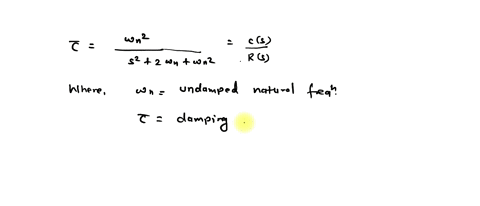 τ = ωn² / s² + 2 ωn + ωn² = C(s) / R(s)
Where, ωn = undamped natural freqⁿ.
τ = damping